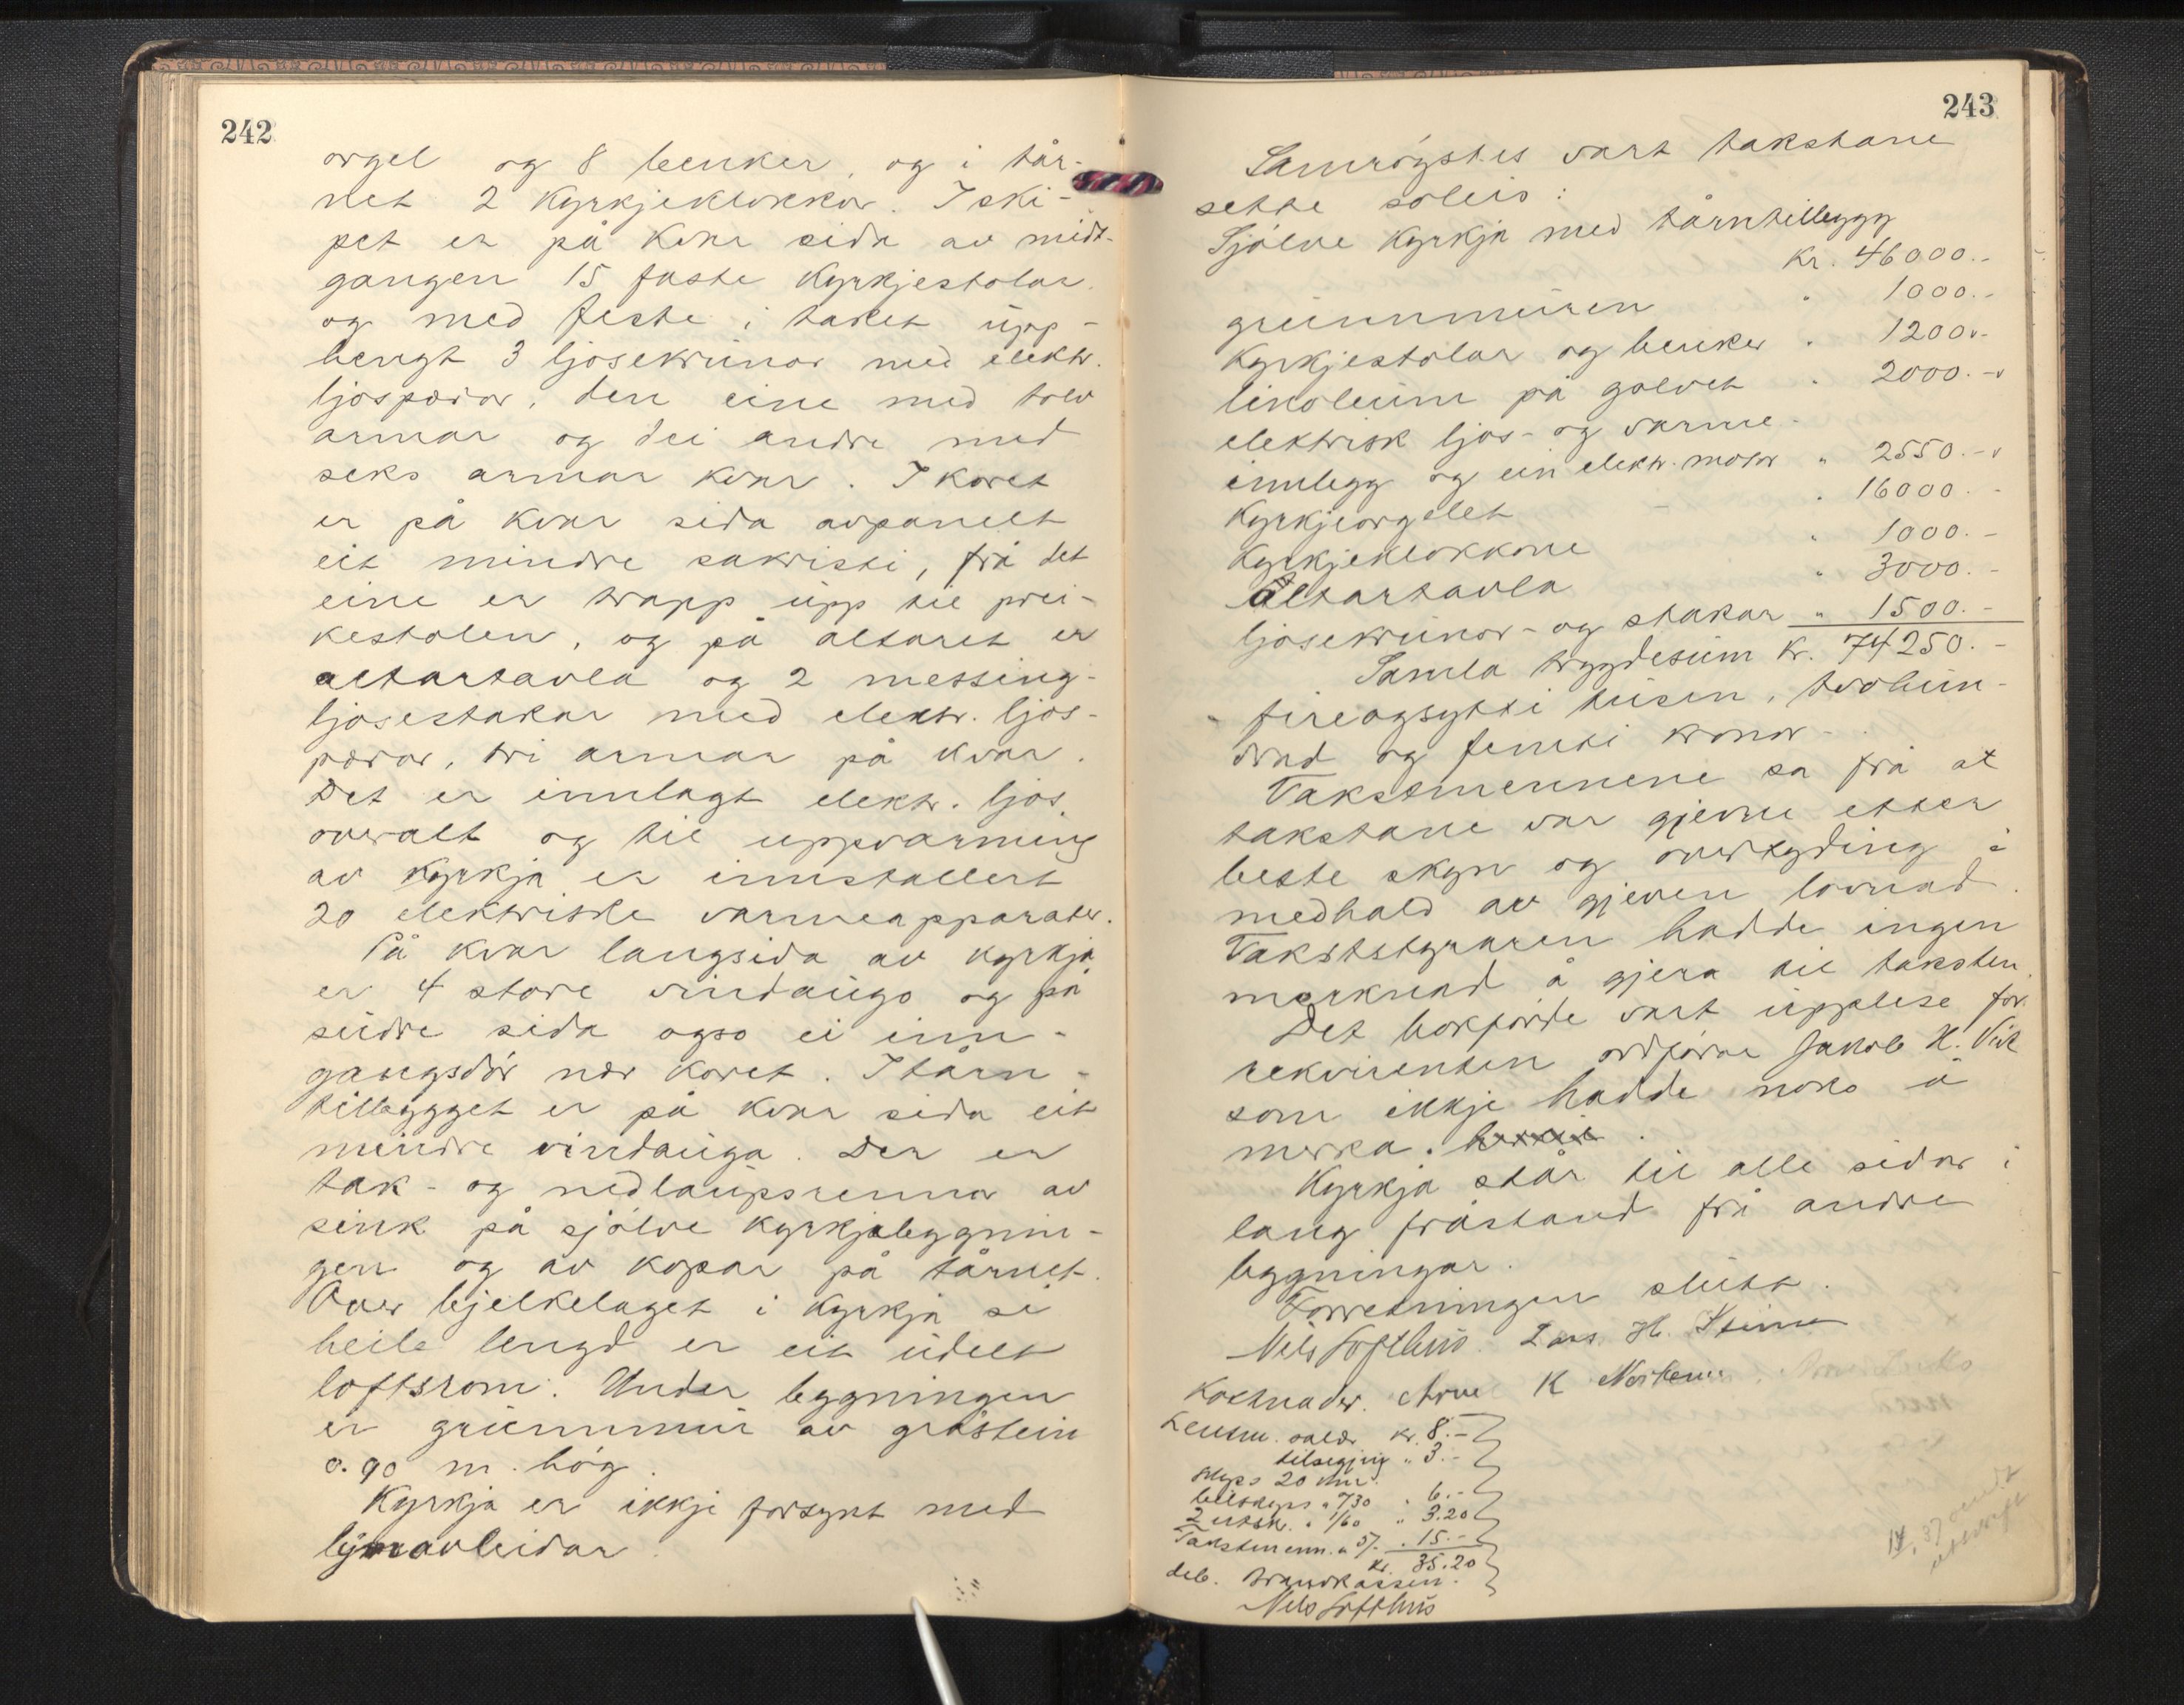 242
orgel og 8 benker, og i tår-
net 2 kyrkjeklokkor. I ski-
pet er på kvar sida av midt-
gangen 15 faste kyrkjestolar.
og med feste i taket upp-
hengt 3 ljosekrunor med elektr.
ljosperor, den eine med tolv
armar og dei andre med
seks armar kvar. I koret
er på kvar sida avpanelt
eit mindre sakristi, frå det
eine er trapp upp til prei-
kestolen, og på altaret er
altartavla og 2 messing-
ljosestakar med elektr. ljos-
peror, tri armar på kvar.
Det er innlagt elektr. ljos
overalt og til uppvarming
av kyrkja er innstallert
20 elektriske varmeapparater.
På kvar langsida av kyrkja
er 4 store vindaugo og på
sudre sida ogso ei inn-
gangsdór nær koret. I tårn-
tillegget er på kvar sida eit
mindre vindauga. Der er
tak- og nedlaupsrennor av
sink på sjólve kyrkjebygnin-
gen og av kopar på tårnet.
Over bjelkelaget i kyrkja si
heile lengd er eit udelt
loftsrom. Under bygningen
er grunnmur av gråstein
0.90 m. hóg.
Kyrkja er ikkje forsynt med
lynavleidar.
243
Samróystes vart takstane
sette soleis:
Sjólve kyrkja med tårntillegg
kr. 46000.-
grunnmuren " 1000.-
Kyrkjestolar og benker " 1200.-
linoleum på golvet " 2000.-
elektrisk ljos- og varme-
innlegg og ein elektr. motor " 2550.-
Kyrkjeorgelet " 16000.-
Kyrkjeklokkone " 1000.-
Altartavla " 3000.-
ljosekrunor- og stakar " 1500.-
Samla trygdesum kr. 74250.-
fireogsytti tusen, tvohun-
drad og femti kronor.
Takstmennene sa frå at
takstane var gjevne etter
beste skyn og overtyding i
medhald av gjeven lovnad.
Takststyraren hadde ingen
merknad å gjera til taksten.
Det bokfórde vart upplese for
rekvirenten ordfórar Jakob H. Vik
som ikkje hadde noko å
merka.
Kyrkja står til alle sidor i
lang fråstand frå andre
bygningar.
Forretningen slutt.
Nils Lofthus. Lars. H. Steine
Kostnader. Arne K
Lensm. salær kr. 8.-
tilsegjing " 3.-
skyss 20 km.
bilskyss " 730 " 6.-
2 utskr. " 1/60 " 3.20
Takstmenn. " 5/- " 15.-
kr. 35.20
deb. brandkassen.
Nils Lofthus